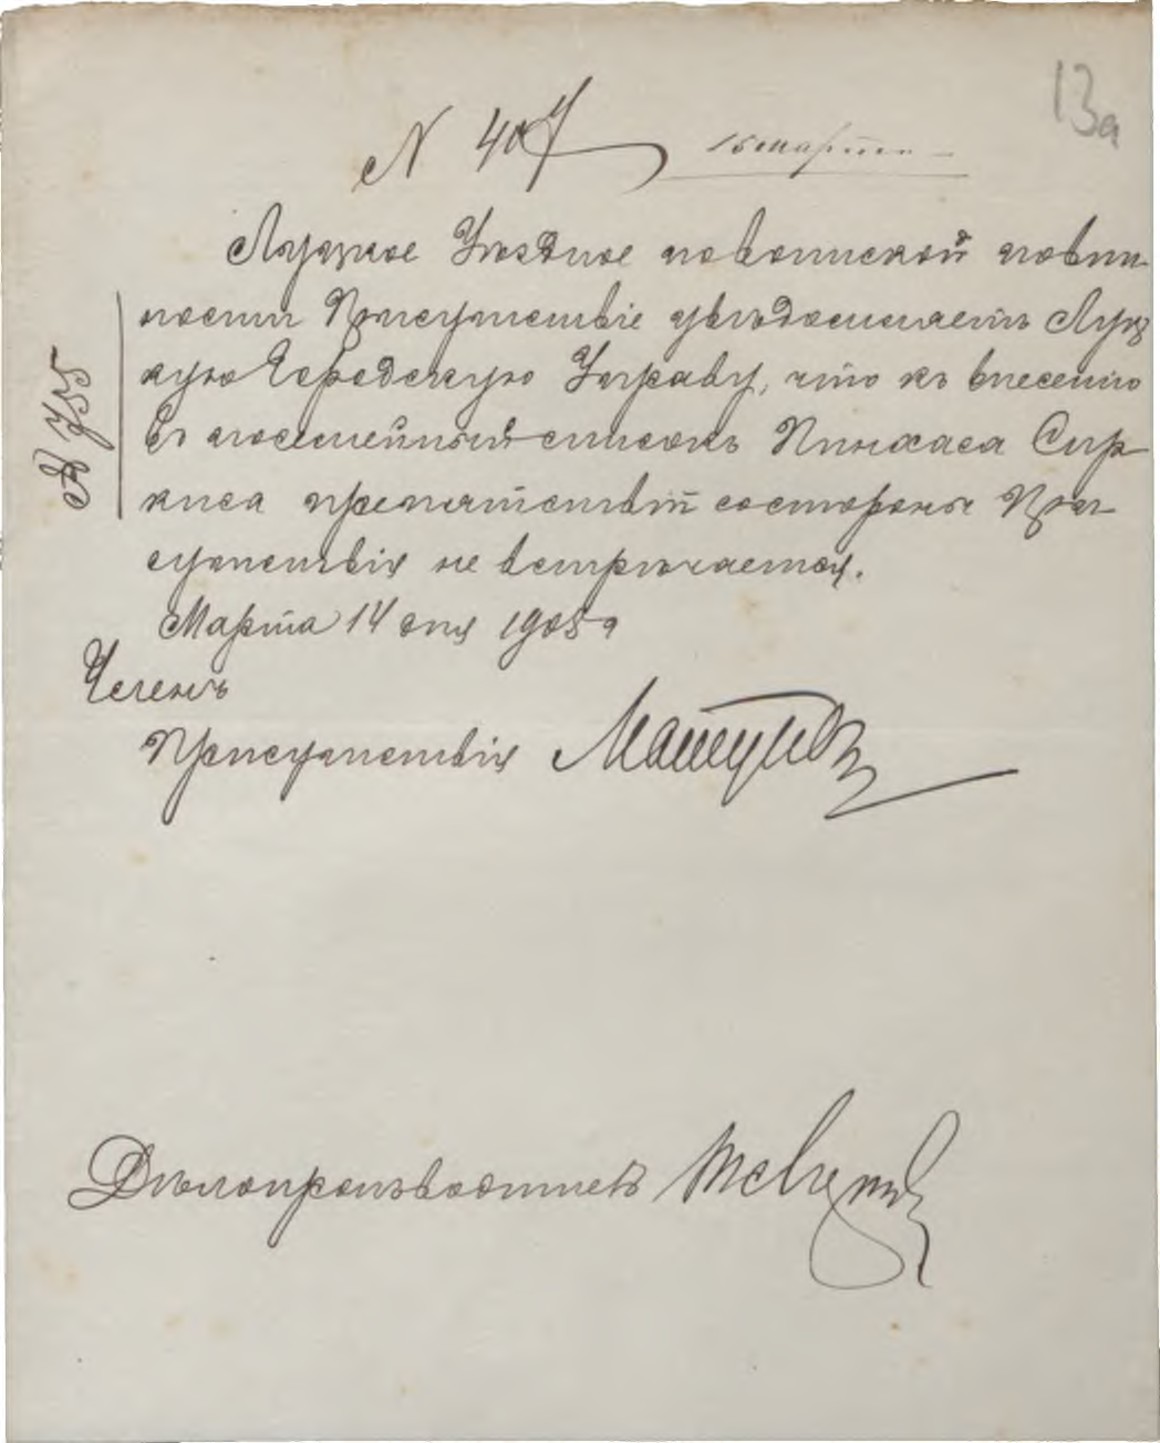 13а
N 407 15 марта
Луцкое Уѣздное по воинской повин-
ности Присутствіе увѣдомляетъ Луц-
кую Городскую Управу, что къ внесенію
въ посемейный списокъ Пинхаса Сир-
киса препятствій со стороны При-
сутствія не встрѣчается.
Марта 14 дня 1905 г
№ 755
Членъ
Присутствія
Дѣлопроизводитель